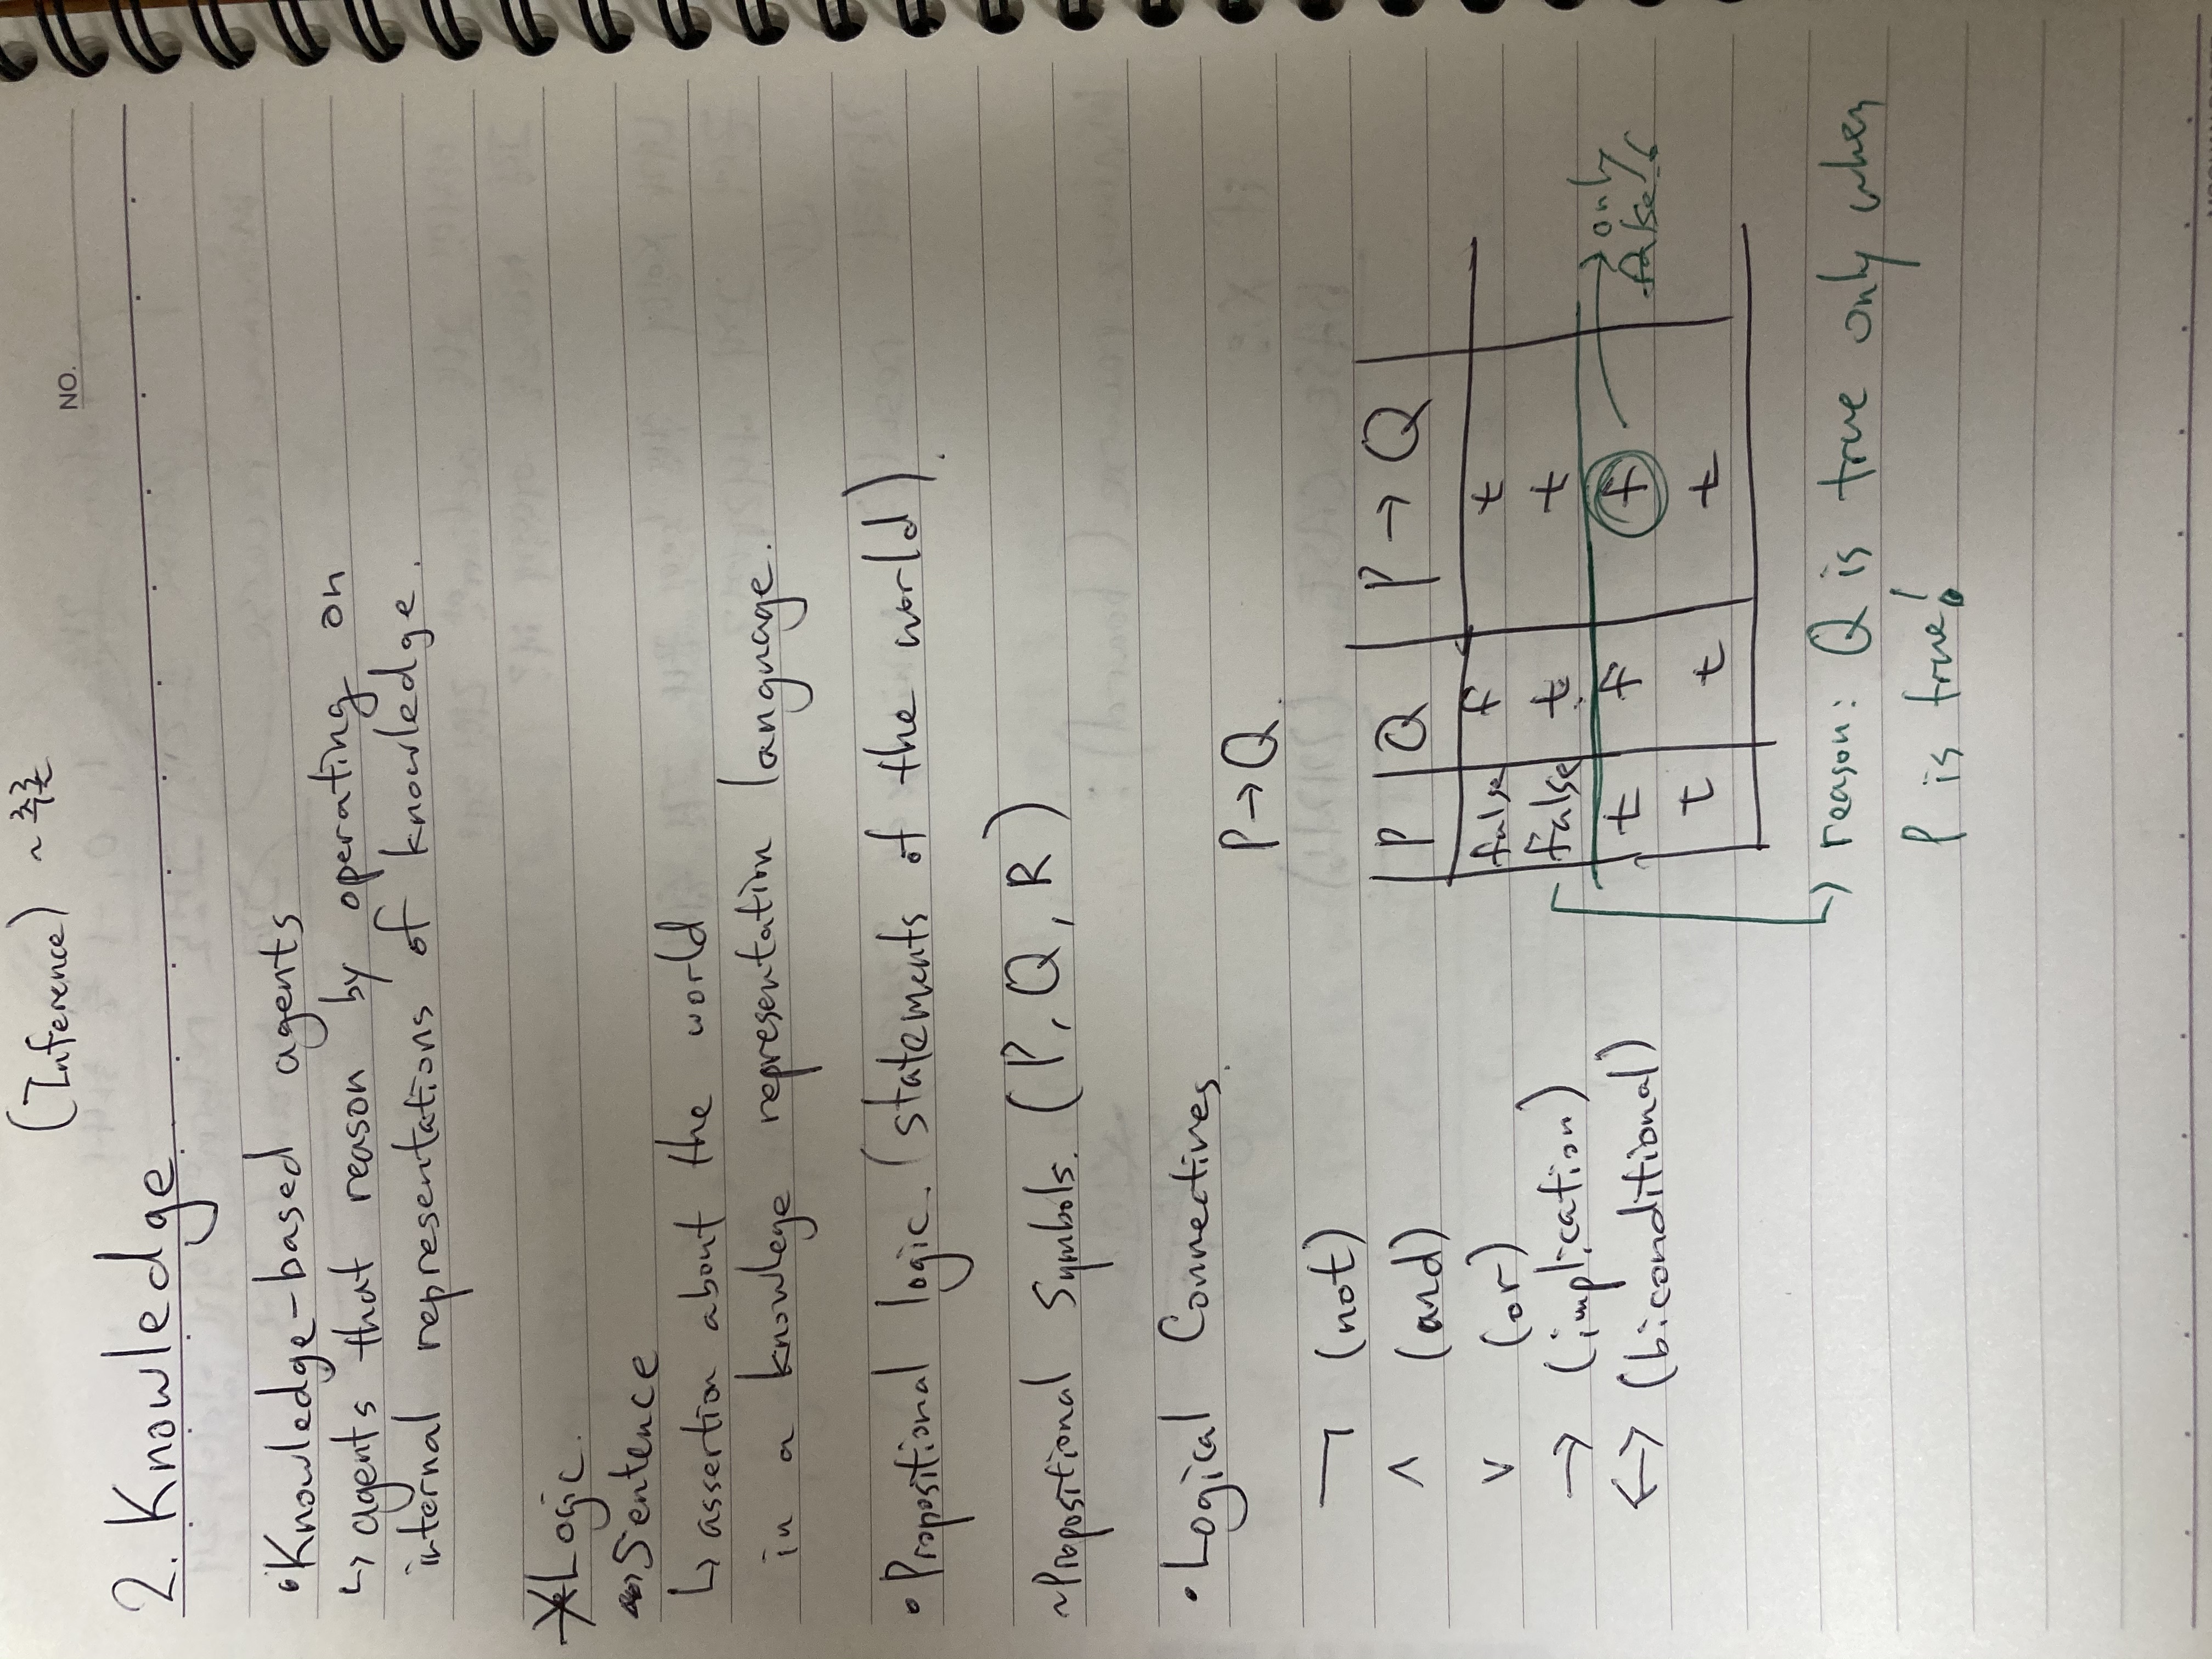 (Inference) ~추론
NO.
2. Knowledge
•Knowledge-based agents
↳ agents that reason by operating on
internal representations of knowledge.
Logic.
Sentence
↳ assertion about the world
in a knowlege representation language.
•Propositional logic. (statements of the world).
~Propositional Symbols. (P, Q, R)
•Logical Connectives.
P→Q.
¬ (not)
∧ (and)
∨ (or)
→ (implication)
↔ (biconditional)
P Q P → Q
false f t
false t t
t f f → only
false
t t t
↳ reason: Q is true only when
P is true!